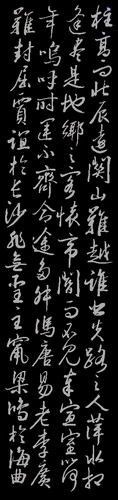 柱高而北辰遠關山難越誰悲失路之人萍水相
逢盡是他鄉之客懷帝閽而不見奉宣室以何
年嗚呼時運不齊命途多舛馮唐易老李廣
難封屈賈誼於長沙非無聖主竄梁鴻於海曲